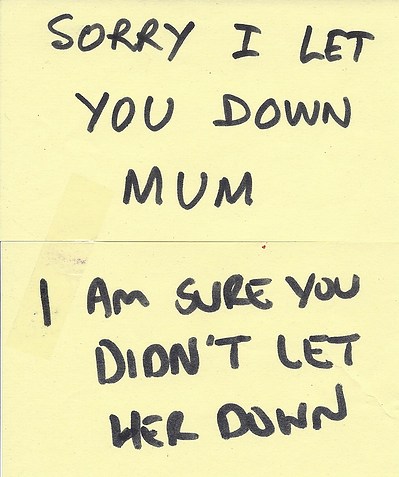 SORRY I LET
YOU DOWN
MUM
I AM SURE YOU
DIDN'T LET
HER DOWN